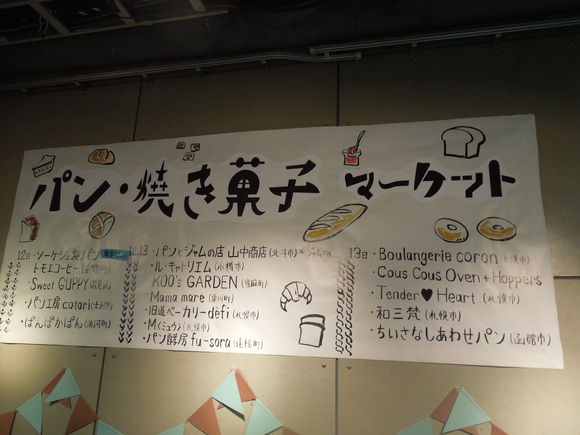 パン・焼き菓子 マーケット
12日・ソーケシュ製パン
トモエコーヒー
・Sweet GUPPY
・パン工房 catari
・ぱんぱかぱん(浦河町)
12.13・パンとジャムの店 山中商店(北斗市)
・ル・キャトリエム
KOO's GARDEN(当麻町)
・Mama mare(東川町)
・旧道ベーカリーdéfi(札幌市)
・M(ミュウ)(札幌市)
・パン酵房 fu-sora(遠軽町)
13日・Boulangerie coron(札幌市)
・Cous Cous Oven + Hoppers
・Tender♥Heart(札幌市)
・和三梵(札幌市)
・ちいさなしあわせパン(函館市)